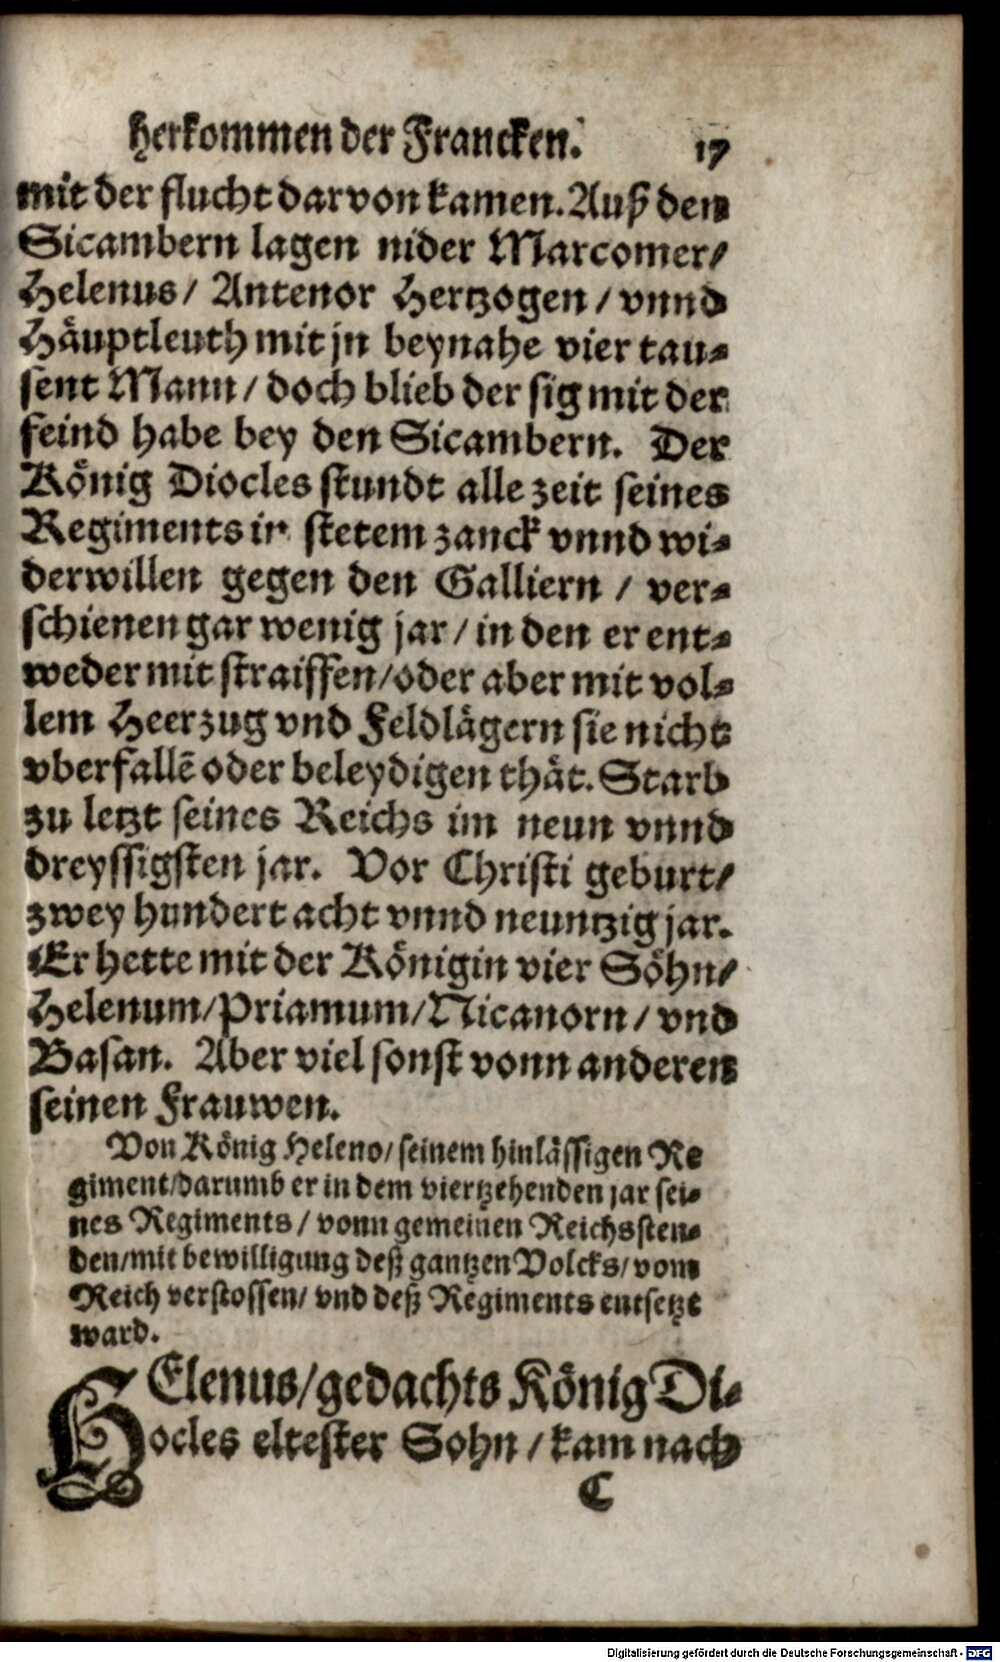 herkommen der Francken. 17
mit der flucht darvon kamen. Auß den
Sicambern lagen nider Marcomer/
Helenus/ Antenor Hertzogen/ vnnd
Häuptleuth mit jn beynahe vier tau-
sent Mann/ doch blieb der sig mit der
feind habe bey den Sicambern. Der
König Diocles stundt alle zeit seines
Regiments in stetem zanck vnnd wi-
derwillen gegen den Galliern/ ver-
schienen gar wenig jar/ in den er ent-
weder mit straiffen/oder aber mit vol-
lem Heerzug vnd Feldlägern sie nicht
vberfallē oder beleydigen thät. Starb
zu letzt seines Reichs im neun vnnd
dreyssigsten jar. Vor Christi geburt/
zwey hundert acht vnnd neuntzig jar.
Er hette mit der Königin vier Söhn/
Helenum/Priamum/Nicanorn/ vnd
Basan. Aber viel sonst vonn anderen
seinen Frauwen.
Von König Heleno/ seinem hinlässigen Re
giment/darumb er in dem viertzehenden jar sei-
nes Regiments/ vonn gemeinen Reichssten-
den/mit bewilligung deß gantzen Volcks/ vom
Reich verstossen/ vnd deß Regiments entsetzt
ward.
HElenus/gedachts König Di-
ocles eltester Sohn/ kam nach
C
Digitalisierung gefördert durch die Deutsche Forschungsgemeinschaft - DFG